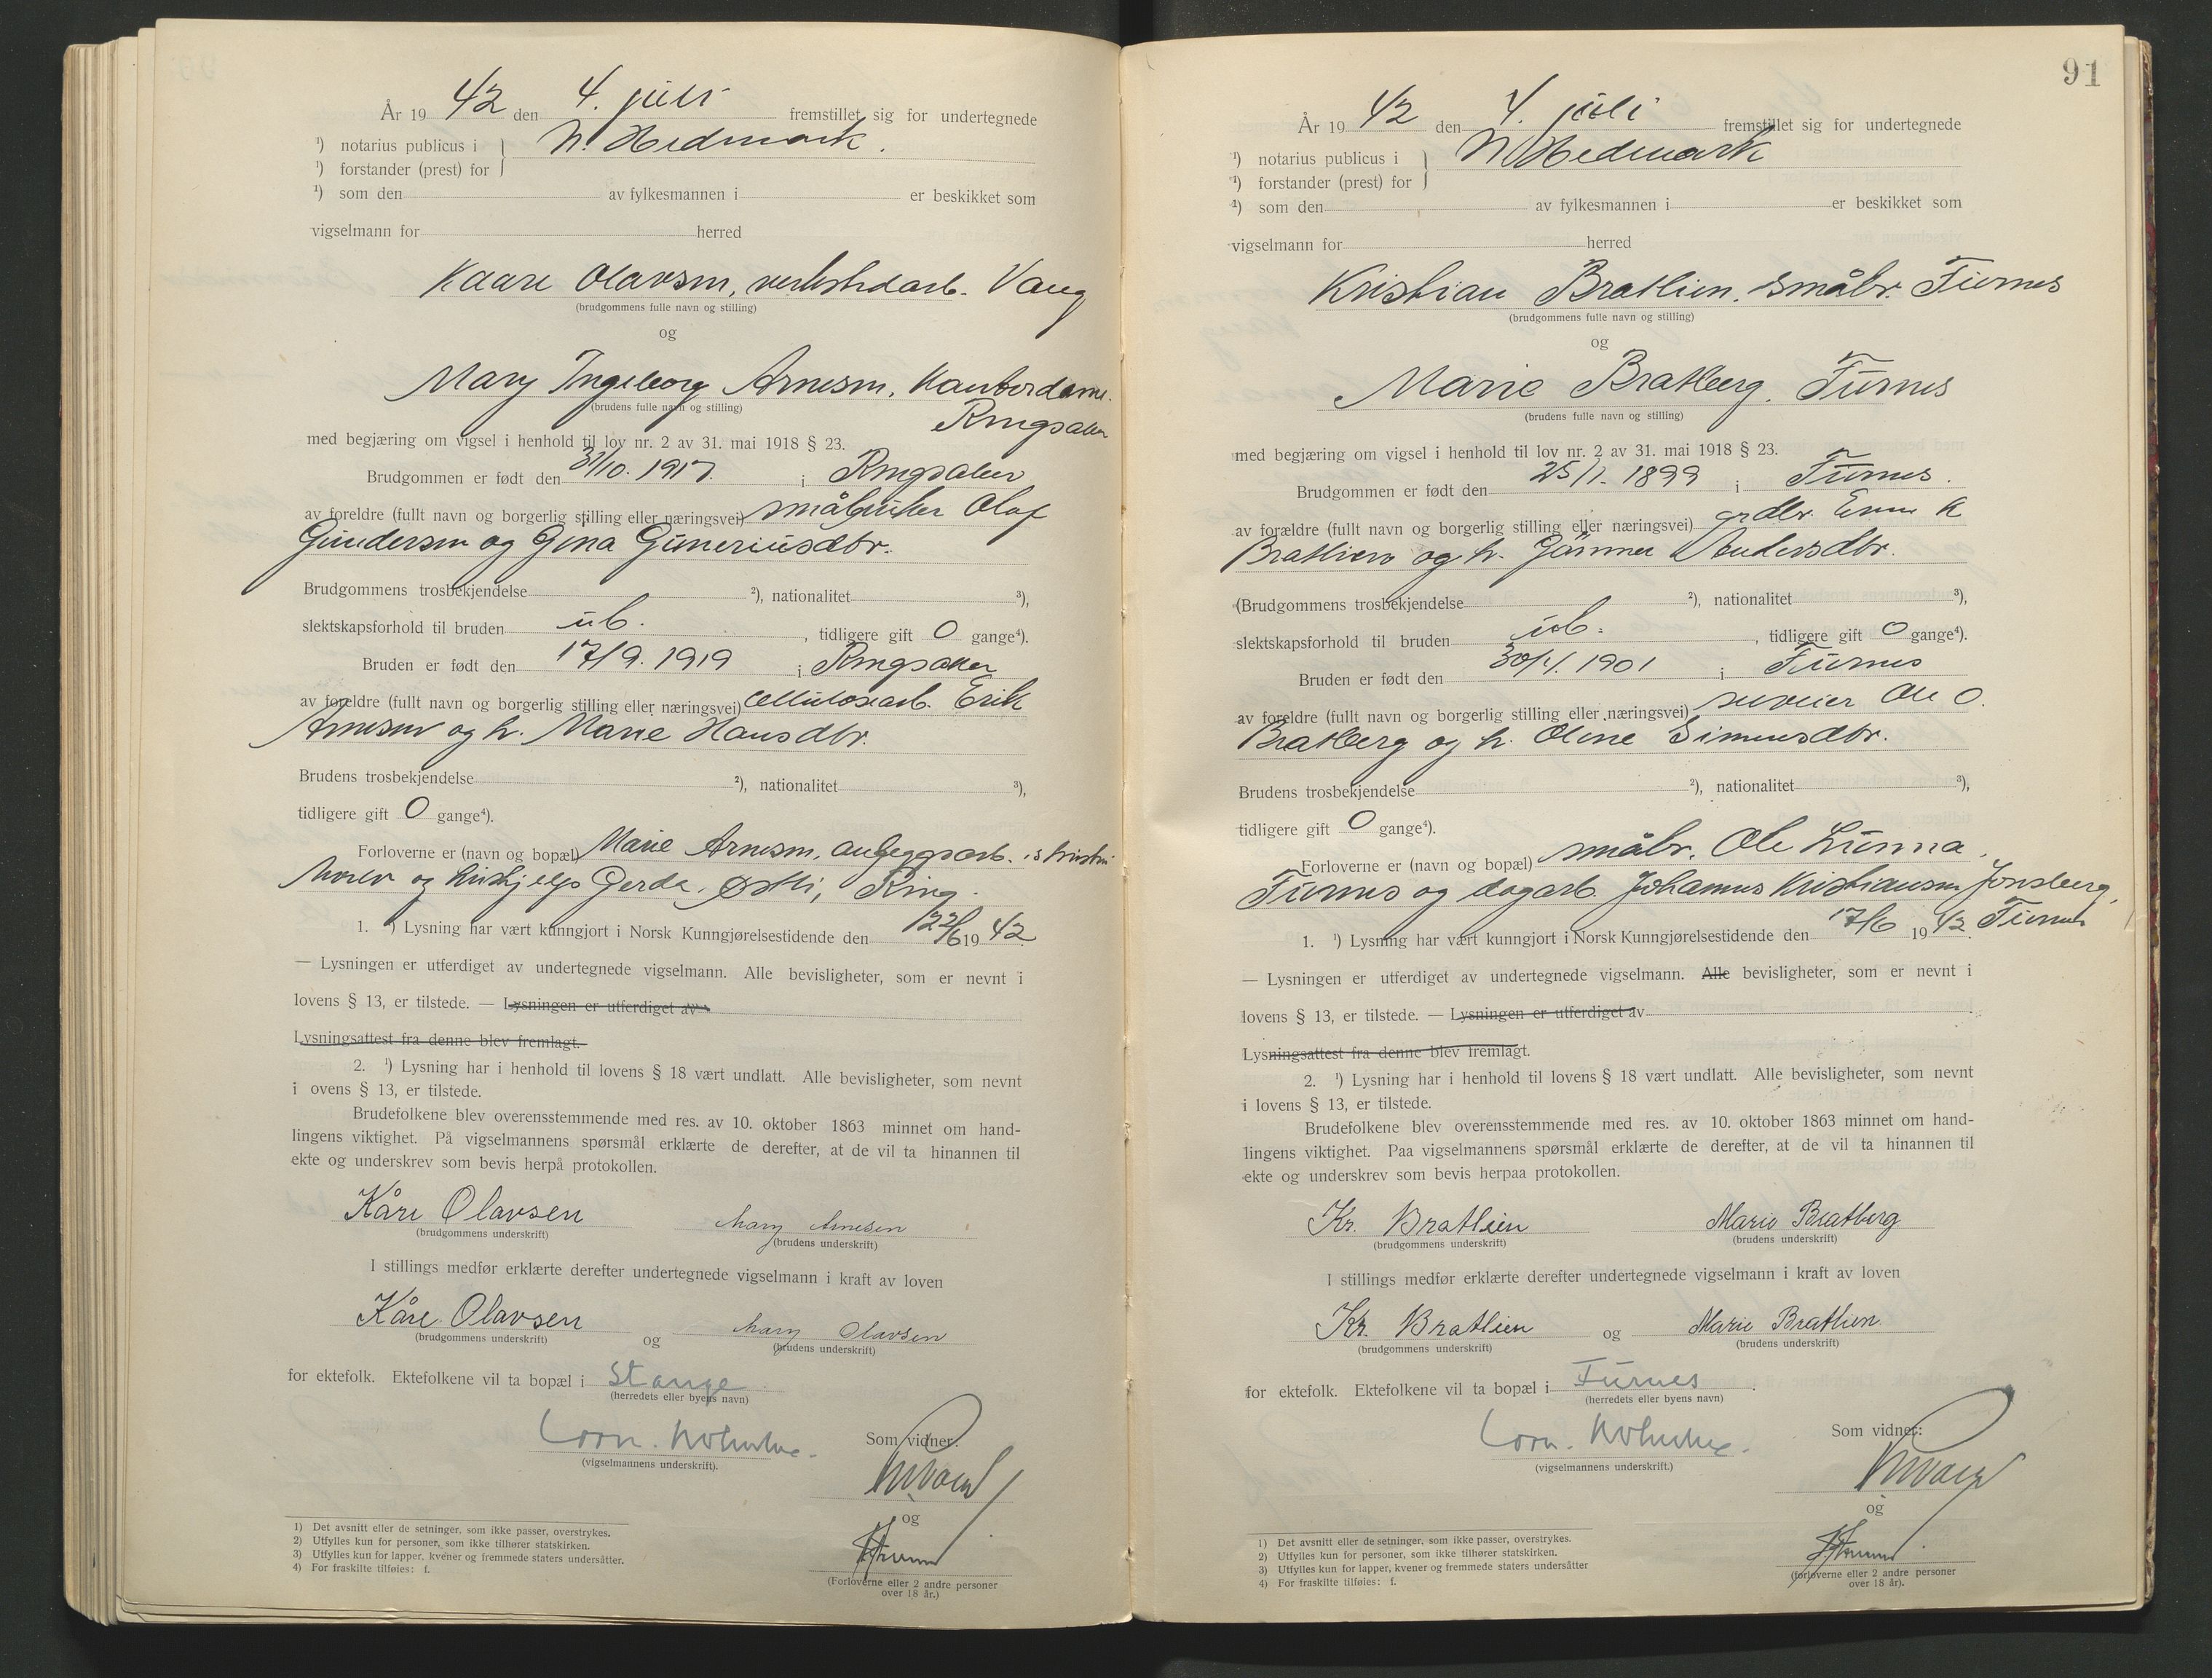 År 19 42 den 4. juli fremstillet sig for undertegnede
¹) notarius publicus i } N. Hedmark.
¹) forstander (prest) for
¹) som den av fylkesmannen i er beskikket som
vigselmann for herred
Kaare Olavsen, verkstedarb. Vang
(brudgommens fulle navn og stilling)
og
Mary Ingeborg Arnesen, Kontordame.
(brudens fulle navn og stilling)
Ringsaker
med begjæring om vigsel i henhold til lov nr. 2 av 31. mai 1918 § 23.
Brudgommen er født den 31/10. 1917. i Ringsaker
av foreldre (fullt navn og borgerlig stilling eller næringsvei) småbruker Olaf
Gundersen og Gina Guneriusdtr.
Brudgommens trosbekjendelse ²), nationalitet ³),
slektskapsforhold til bruden ub. , tidligere gift 0 gange⁴).
Bruden er født den 17/9. 1919 i Ringsaker
av foreldre (fullt navn og borgerlig stilling eller næringsvei) cellulosearb. Erik
Arnesen og h. Marie Hansdtr.
Brudens trosbekjendelse ²), nationalitet ³),
tidligere gift 0 gange⁴).
Forloverne er (navn og bopæl) Marie Arnesen, anleggsarb.
og Gerda Østli, Ring.
1. ¹) Lysning har vært kunngjort i Norsk Kunngjørelsestidende den 22/6 19 42
— Lysningen er utferdiget av undertegnede vigselmann. Alle bevisligheter, som er nevnt i
lovens § 13, er tilstede. — Lysningen er utferdiget av
Lysningsattest fra denne blev fremlagt.
2. ¹) Lysning har i henhold til lovens § 18 vært undlatt. Alle bevisligheter, som nevnt
i ovens § 13, er tilstede.
Brudefolkene blev overensstemmende med res. av 10. oktober 1863 minnet om hand-
lingens viktighet. På vigselmannens spørsmål erklærte de derefter, at de vil ta hinannen til
ekte og underskrev som bevis herpå protokollen.
Kåre Olavsen Mary Arnesen
(brudgommens underskrift) (brudens underskrift)
I stillings medfør erklærte derefter undertegnede vigselmann i kraft av loven
Kåre Olavsen og Mary Olavsen
(brudgommens underskrift) (brudens underskrift)
for ektefolk. Ektefolkene vil ta bopæl i Stange
(herredets eller byens navn)
Som vidner:
(vigselmannens underskrift).
og
(Forloverne eller 2 andre personer
over 18 år.)
1) Det avsnitt eller de setninger, som ikke passer, overstrykes.
2) Utfylles kun for personer, som ikke tilhører statskirken.
3) Utfylles kun for lapper, kvener og fremmede staters undersåtter.
4) For fraskilte tilføies: f.
91
År 19 42 den 4. juli fremstillet sig for undertegnede
¹) notarius publicus i } N Hedmark
¹) forstander (prest) for
¹) som den av fylkesmannen i er beskikket som
vigselmann for herred
Kristian Bratlien, småbr. Furnes
(brudgommens fulle navn og stilling)
og
Marie Bratberg, Furnes
(brudens fulle navn og stilling)
med begjæring om vigsel i henhold til lov nr. 2 av 31. mai 1918 § 23.
Brudgommen er født den 25/1. 1899 i Furnes.
av forældre (fullt navn og borgerlig stilling eller næringsvei) grdbr. Even K
Bratlien og h. Andersdtr.
(Brudgommens trosbekjendelse ²), nationalitet ³),
slektskapsforhold til bruden ub. , tidligere gift 0 gange⁴).
Bruden er født den 30/4. 1901 i Furnes
av foreldre (fullt navn og borgerlig stilling eller næringsvei) Ole O.
Bratberg og h. Oline Simensdtr.
Brudens trosbekjendelse ²), nationalitet ³),
tidligere gift 0 gange⁴).
Forloverne er (navn og bopæl) småbr. Ole Lunna,
Furnes og dagarb. Johannes Kristiansen Jønsberg,
Furnes
1. ¹) Lysning har vært kunngjort i Norsk Kunngjørelsestidende den 17/6 19 42
— Lysningen er utferdiget av undertegnede vigselmann. Alle bevisligheter, som er nevnt i
lovens § 13, er tilstede. — Lysningen er utferdiget av
Lysningsattest fra denne blev fremlagt.
2. ¹) Lysning har i henhold til lovens § 18 vært undlatt. Alle bevisligheter, som nevnt
i lovens § 13, er tilstede.
Brudefolkene blev overensstemmende med res. av 10. oktober 1863 minnet om hand-
lingens viktighet. Paa vigselmannens spørsmål erklærte de derefter, at de vil ta hinannen til
ekte og underskrev som bevis herpaa protokollen.
Kr. Bratlien Marie Bratberg
(brudgommens underskrift) (brudens underskrift)
I stillings medfør erklærte derefter undertegnede vigselmann i kraft av loven
Kr. Bratlien og Marie Bratlien
(brudgommens underskrift) (brudens underskrift)
for ektefolk. Ektefolkene vil ta bopæl i Furnes.
(herredets eller byens navn)
Som vidner:
(vigselmannens underskrift.)
og
(forloverne eller 2 andre personer
over 18 år).
1) Det avsnitt eller de setninger, som ikke passer, overstrykes.
2) Utfylles kun for personer, som ikke tilhører statskirken.
3) Utfylles kun for lapper, kvener og fremmede staters undersåtter
4) For fraskilte tilføies: f.